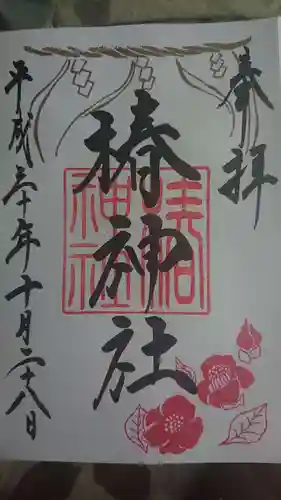 奉拝
椿神社
平成三十年十月二十八日